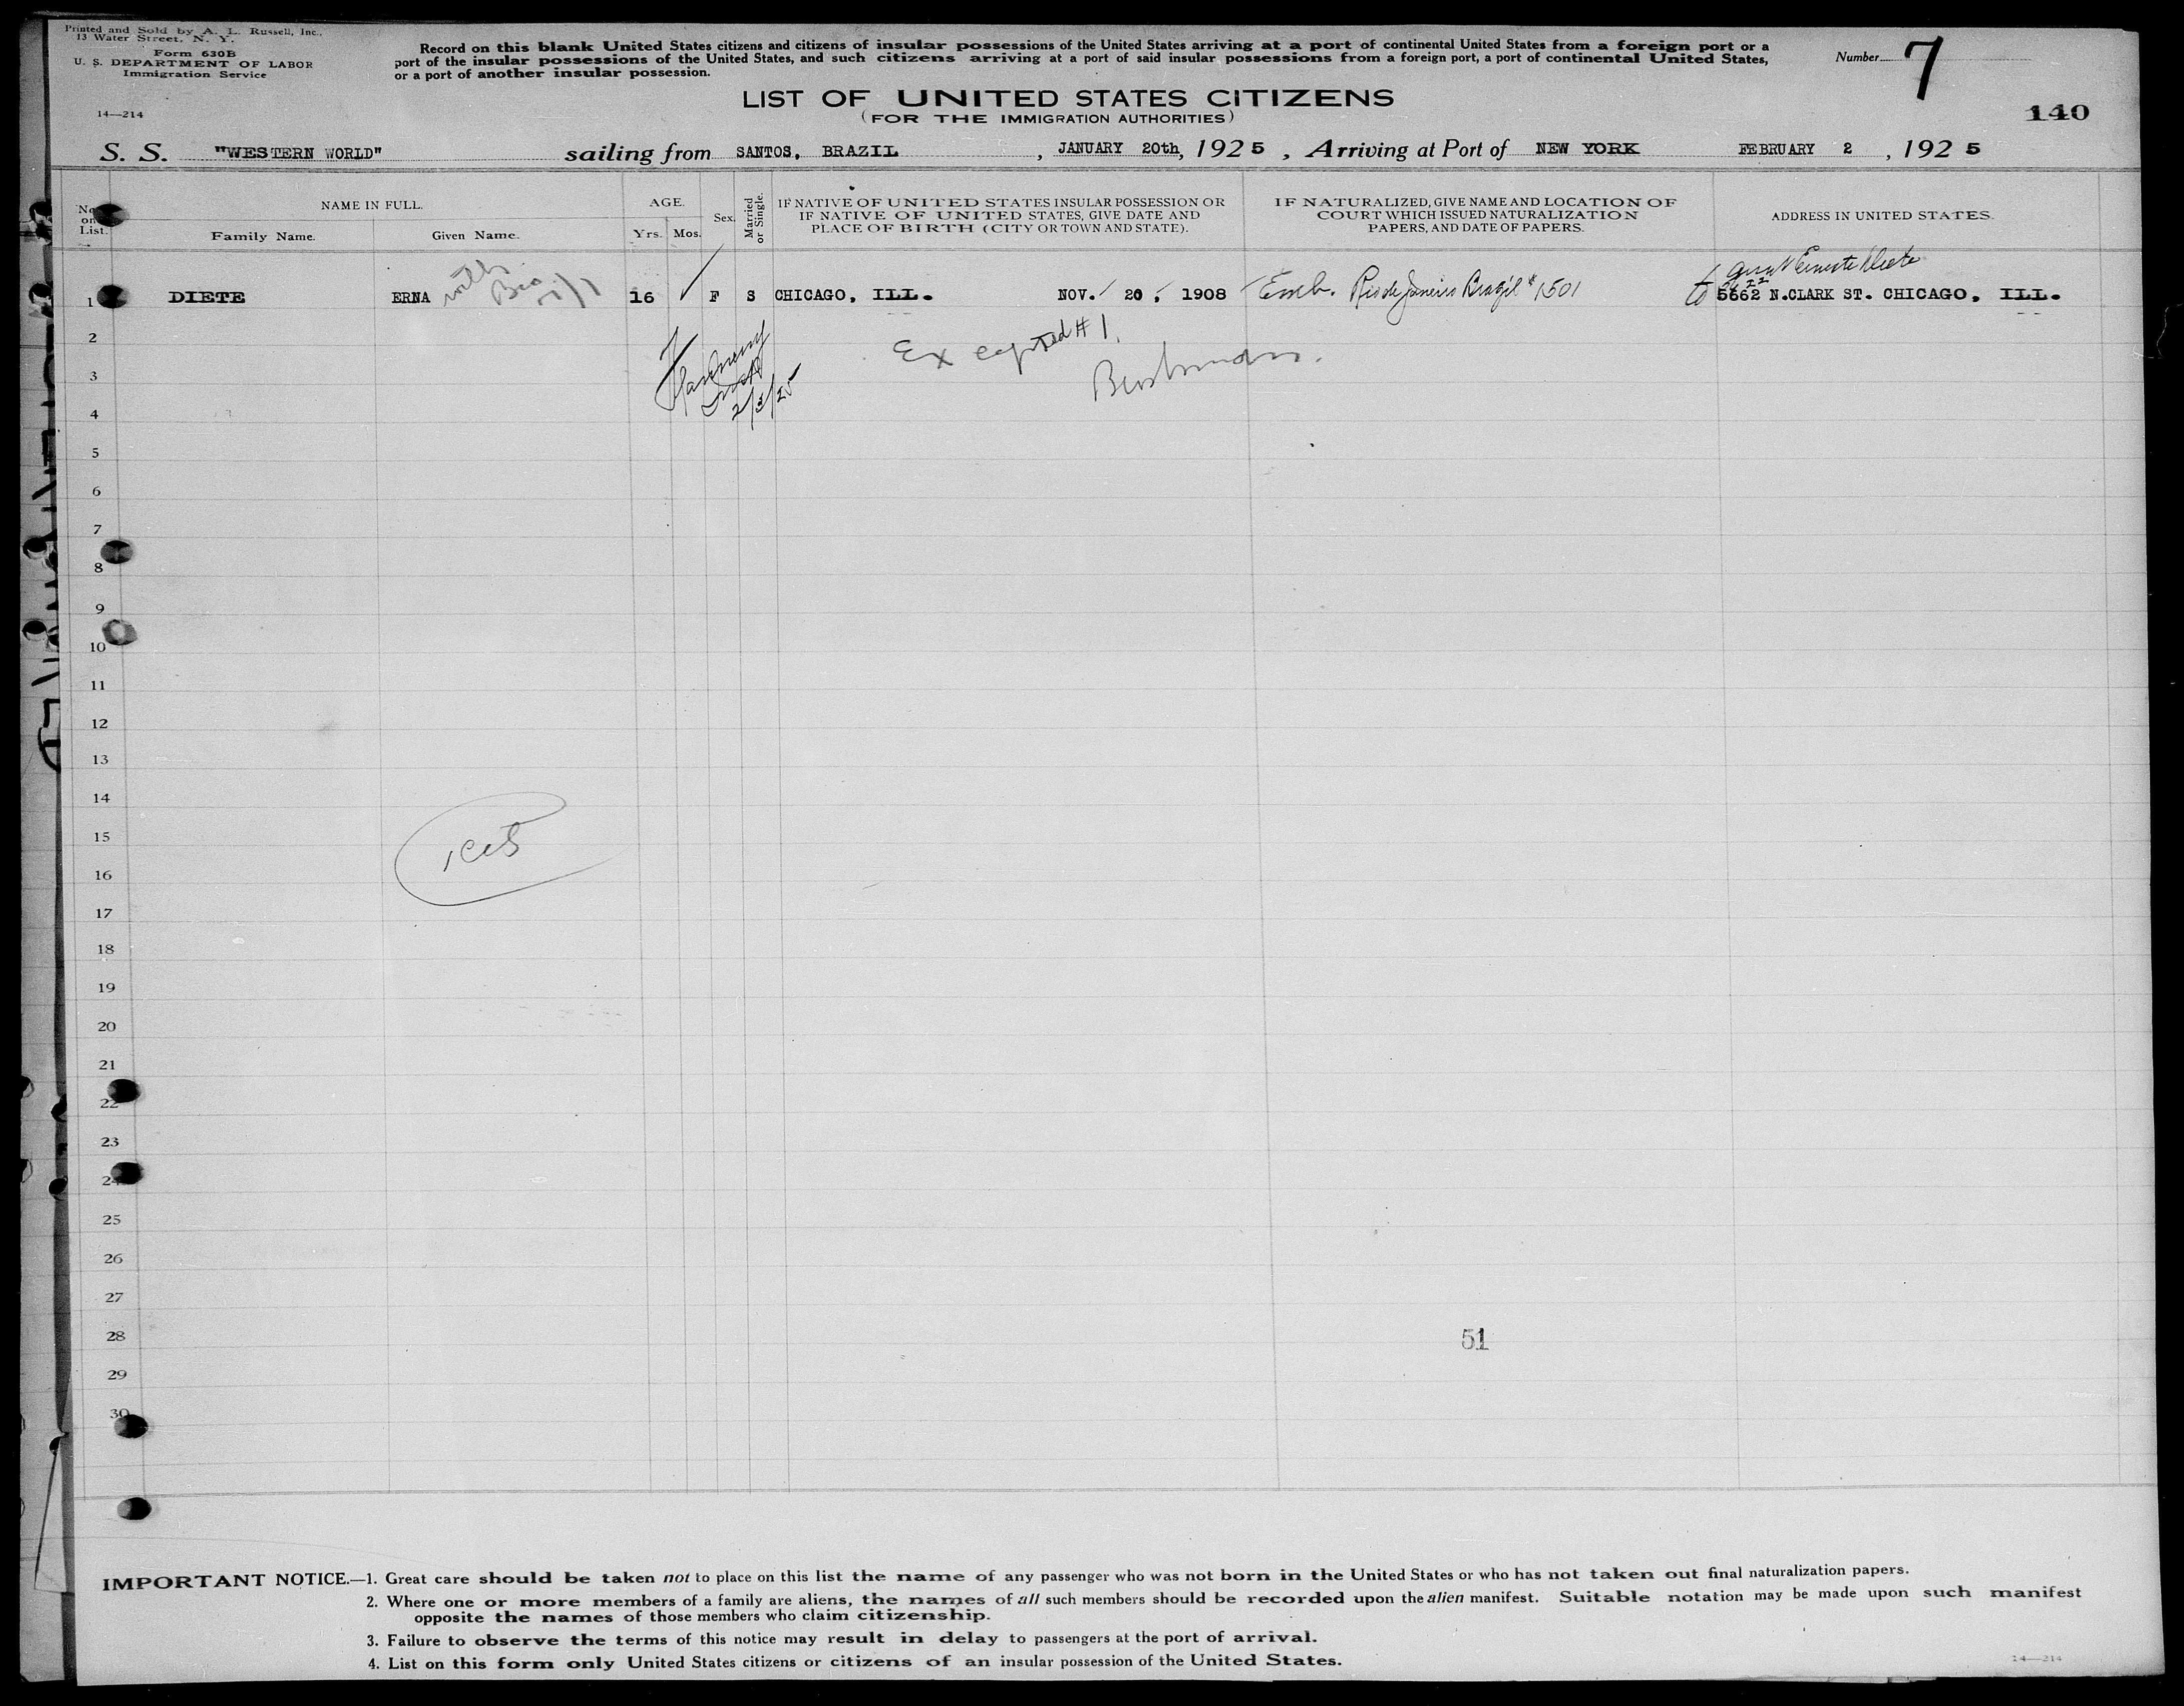 Printed and Sold by A. L. Russell, Inc.,
13 Water Street, N. Y.
Form 630B
U. S. DEPARTMENT OF LABOR
Immigration Service
14—214
Record on this blank United States citizens and citizens of insular possessions of the United States arriving at a port of continental United States from a foreign port or a
port of the insular possessions of the United States, and such citizens arriving at a port of said insular possessions from a foreign port, a port of continental United States,
or a port of another insular possession.
Number 7
LIST OF UNITED STATES CITIZENS
(FOR THE IMMIGRATION AUTHORITIES)
140
S. S. "WESTERN WORLD" sailing from SANTOS, BRAZIL, JANUARY 20th, 1925, Arriving at Port of NEW YORK FEBRUARY 2, 1925
No. on List.
NAME IN FULL.
Family Name. Given Name.
AGE.
Yrs. Mos.
Sex.
Married or Single.
IF NATIVE OF UNITED STATES INSULAR POSSESSION OR
IF NATIVE OF UNITED STATES, GIVE DATE AND
PLACE OF BIRTH (CITY OR TOWN AND STATE).
IF NATURALIZED, GIVE NAME AND LOCATION OF
COURT WHICH ISSUED NATURALIZATION
PAPERS, AND DATE OF PAPERS.
ADDRESS IN UNITED STATES.
1 DIETE ERNA with 16 F S CHICAGO, ILL. NOV. 20, 1908 Emb. Rio de Janeiro Brazil #1501 to 5662 N.CLARK ST. CHICAGO, ILL.
2
Ex #1
3
2/3/25
4
5
6
7
8
9
10
11
12
13
14
15
16
17
18
19
20
21
22
23
24
25
26
27
28
51
29
30
IMPORTANT NOTICE.—1. Great care should be taken not to place on this list the name of any passenger who was not born in the United States or who has not taken out final naturalization papers.
2. Where one or more members of a family are aliens, the names of all such members should be recorded upon the alien manifest. Suitable notation may be made upon such manifest
opposite the names of those members who claim citizenship.
3. Failure to observe the terms of this notice may result in delay to passengers at the port of arrival.
4. List on this form only United States citizens or citizens of an insular possession of the United States.
14—214